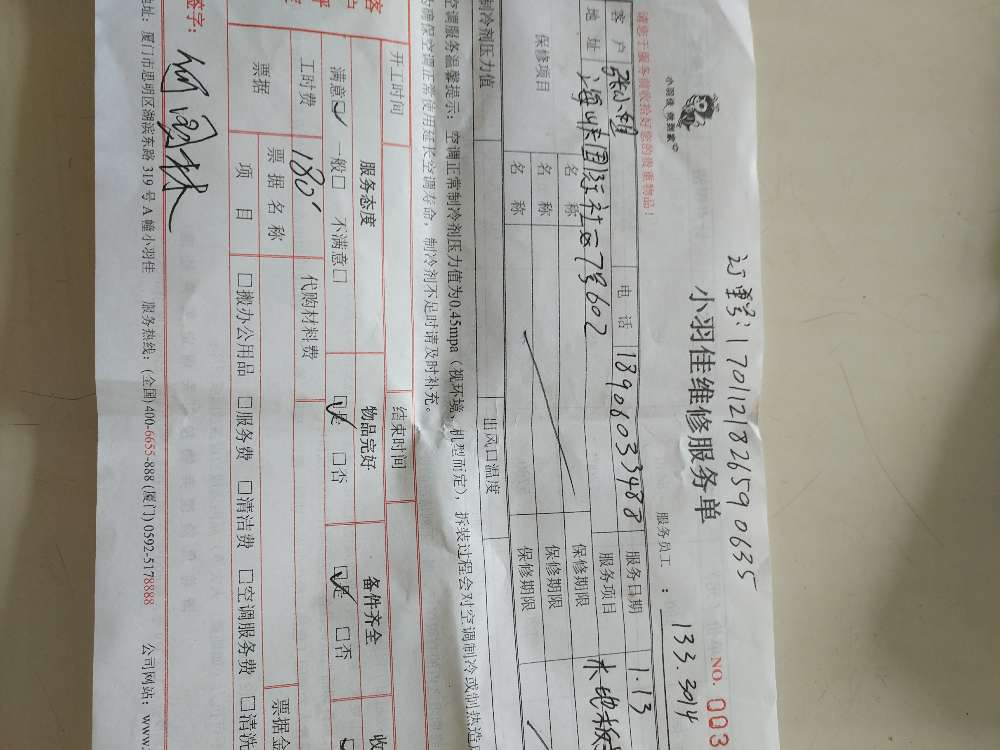 订单号:1701121826590635
小羽佳 做到家
小羽佳维修服务单
NO. 003
请您于服务前收拾好您的贵重物品!
服务员工: 133.3014
客户 张小姐 电话 18906033488 服务日期 1.13
地址 国驻社一7号602 服务项目 木地板
保修项目 名称 保修期限
名称 保修期限
名称 保修期限
制冷剂压力值 出风口温度
空调服务温馨提示:空调正常制冷剂压力值为0.45mpa(视环境、机型而定),拆装过程会对空调制冷或制热造
为确保空调正常使用延长空调寿命,制冷剂不足时请及时补充。
开工时间 结束时间
服务态度 物品完好 备件齐全 收
满意☑ 一般□ 不满意□ ☑是 □否 ☑是 □否
工时费 180 代购材料费
票据 票据名称 票据金
项目 □搬办公用品 □服务费 □清洁费 □空调服务费 □清洗
签字:
地址:厦门市思明区湖滨东路319号A幢小羽佳 服务热线:(全国)400-6655-888 (厦门)0592-5178888 公司网站:www.